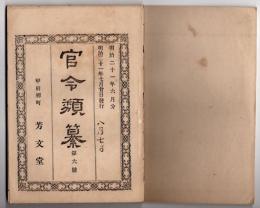 明治二十一年六月分
明治二十一年七月廿日發行
八月七日
官令類纂
第六號
甲府柳町
芳文堂